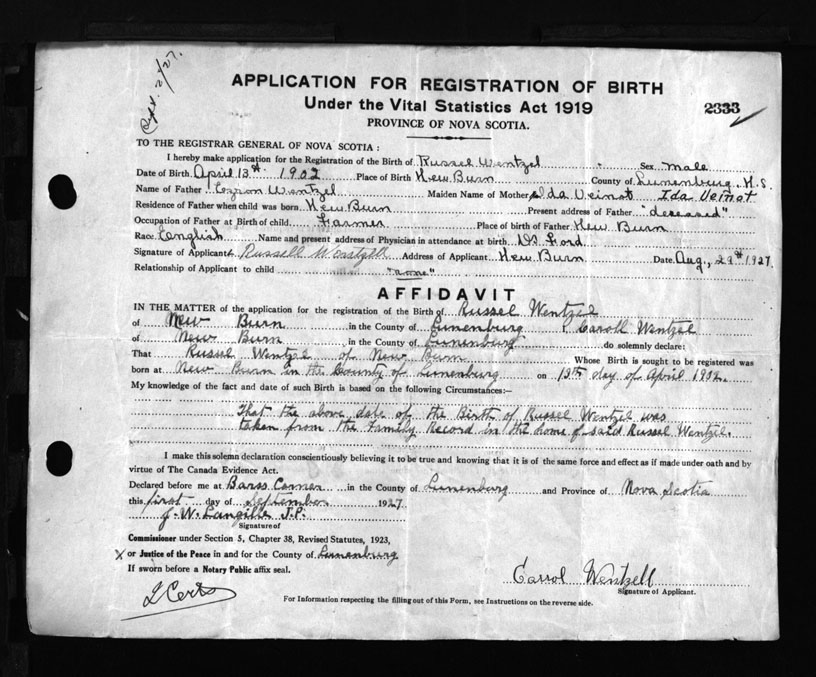 Sept. 2/27.
APPLICATION FOR REGISTRATION OF BIRTH
Under the Vital Statistics Act 1919
2333
PROVINCE OF NOVA SCOTIA.
TO THE REGISTRAR GENERAL OF NOVA SCOTIA :
I hereby make application for the Registration of the Birth of Russel Wentzel Sex male
Date of Birth April 13th 1902 Place of Birth New Burn County of Lunenburg, N.S.
Name of Father Wentzel Maiden Name of Mother Ida Veinot Ida Veinot
Residence of Father when child was born New Burn Present address of Father "deceased"
Occupation of Father at Birth of child Farmer Place of birth of Father New Burn
Race English Name and present address of Physician in attendance at birth Dr Ford
Signature of Applicant Russell Wentzell Address of Applicant New Burn Date Aug, 29th 1927
Relationship of Applicant to child "none"
AFFIDAVIT
IN THE MATTER of the application for the registration of the Birth of Russel Wentzel
of New Burn in the County of Lunenburg I, Caroll Wentzel
of New Burn, in the County of Lunenburg do solemnly declare:
That Russel Wentzel of New Burn Whose Birth is sought to be registered was
born at New Burn in the County of Lunenburg on 13th day of April 1902.
My knowledge of the fact and date of such Birth is based on the following Circumstances:—
That the above date of the Birth of Russel Wentzel was
taken from the Family Record in the home of said Russel Wentzel.
I make this solemn declaration conscientiously believing it to be true and knowing that it is of the same force and effect as if made under oath and by
virtue of The Canada Evidence Act.
Declared before me at Barss Corner in the County of Lunenburg and Province of Nova Scotia
this first day of September 1927
J. W. Langille J.P.
Signature of
Commissioner under Section 5, Chapter 38, Revised Statutes, 1923,
X or Justice of the Peace in and for the County of Lunenburg
If sworn before a Notary Public affix seal.
Carrol Wentzell
Signature of Applicant.
For Information respecting the filling out of this Form, see Instructions on the reverse side.